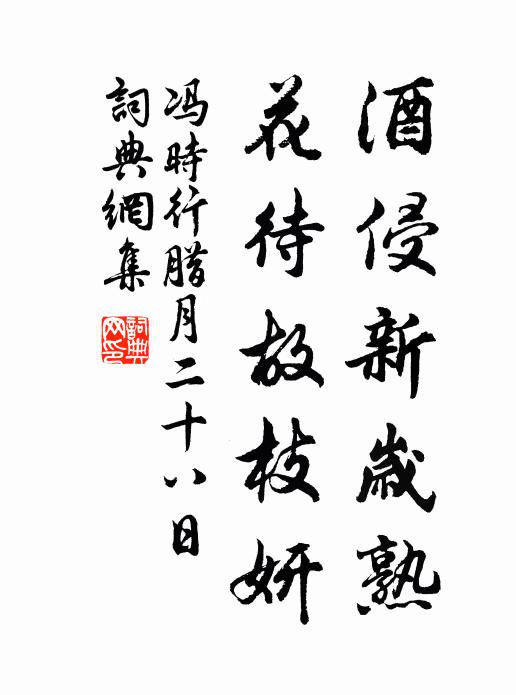 酒侵新歲熟
花待故枝妍
冯時行腊月二十八日
詞典網集
詞典
网印